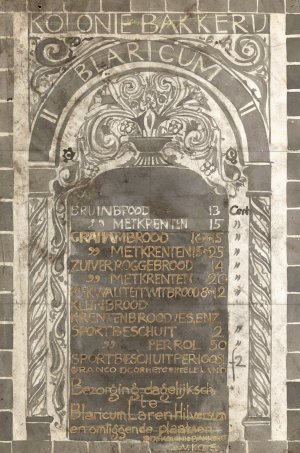 KOLONIE BAKKERIJ
BLARICUM
BRUINBROOD 13 Cent
„ METKRENTEN 15 „
GRAHAMBROOD 16 „
„ METKRENTEN 25 „
ZUIVER ROGGEBROOD 14 „
„ METKRENTEN 20 „
WITBROOD 12 „
KLEINBROOD
KRENTENBROODJES ENZ.
SPORTBESCHUIT 2 „
„ PER ROL 50 „
SPORTBESCHUIT PER 100 ST
FRANCO DOOR HET GEHEELE LAND
Bezorging dagelijksch
te
Blaricum Laren Hilversum
en omliggende plaatsen